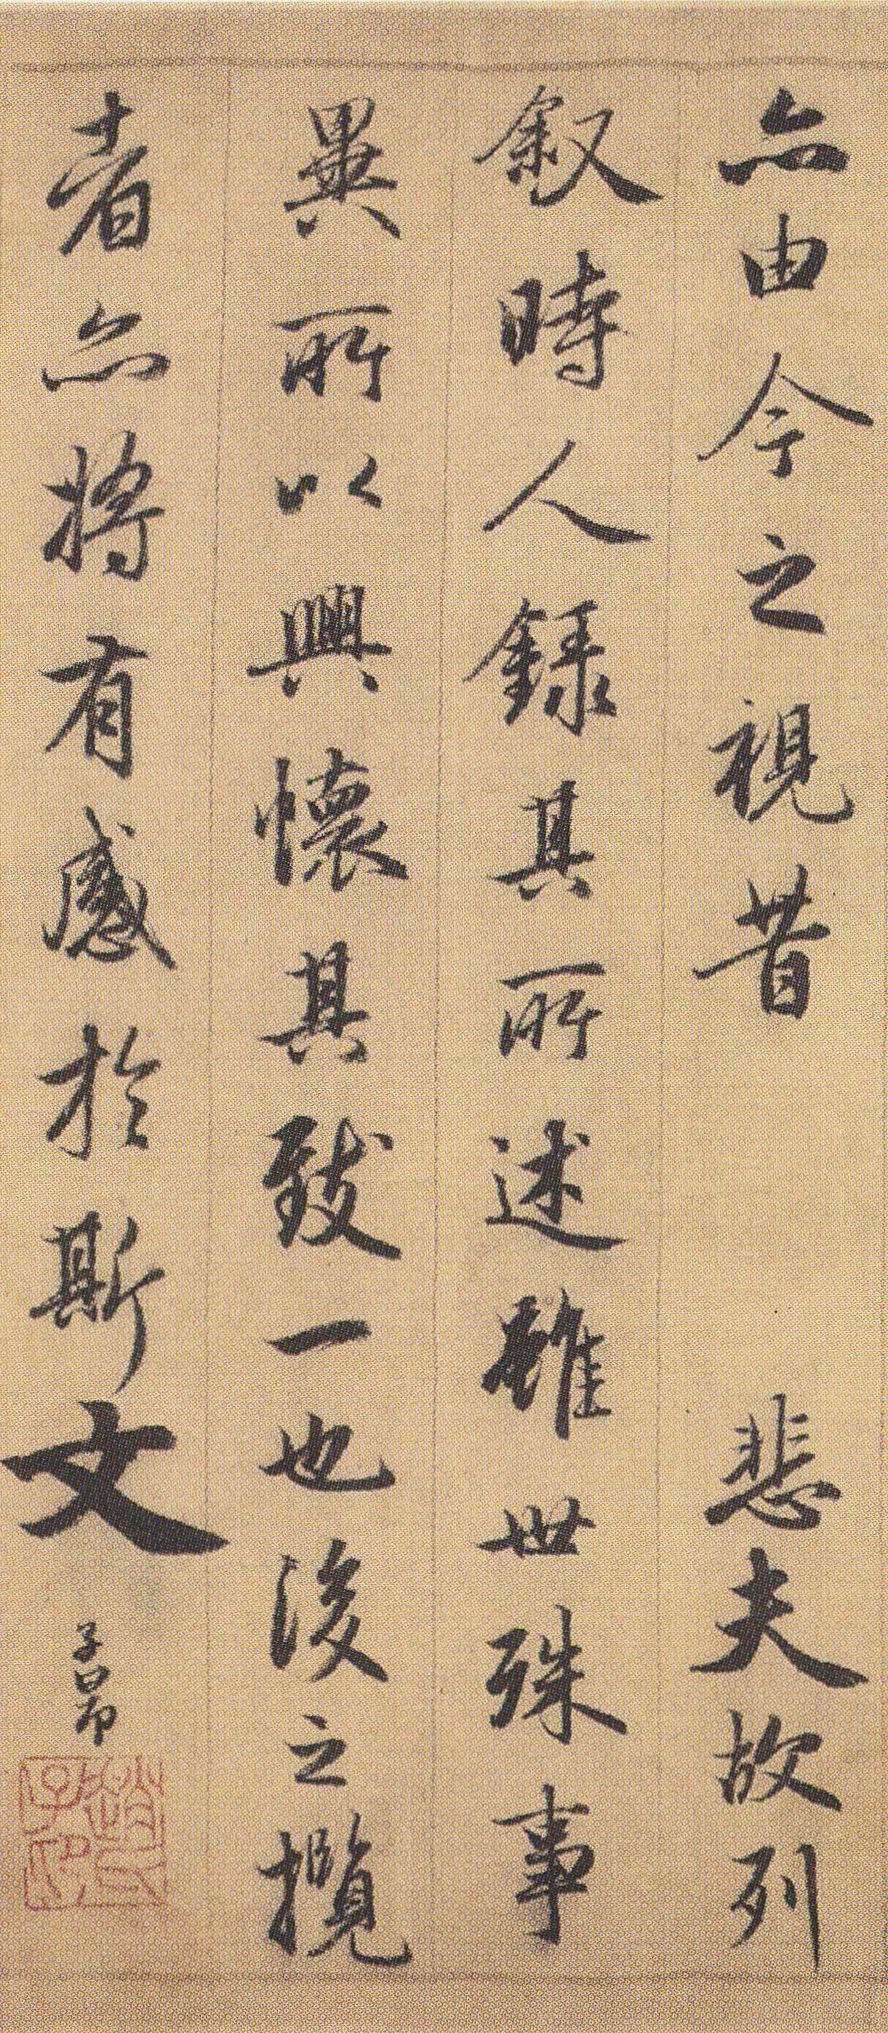 亦由今之視昔 悲夫故列
叙時人録其所述雖世殊事
異所以興懷其致一也後之攬
者亦将有感於斯文
子昂
趙氏子印